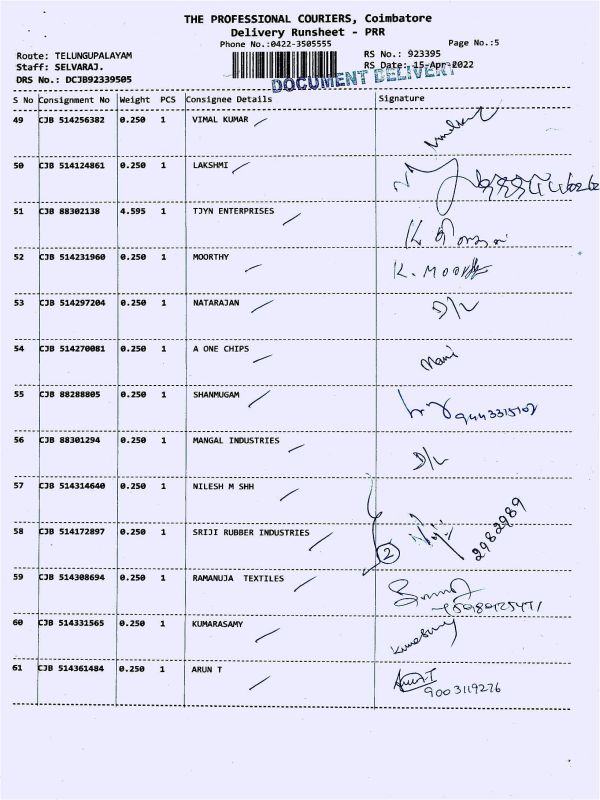 THE PROFESSIONAL COURIERS, Coimbatore
Delivery Runsheet - PRR
Phone No.:0422-3505555
Page No.:5
Route: TELUNGUPALAYAM
RS No.: 923395
Staff: SELVARAJ.
RS Date: 15-Apr-2022
DRS No.: DCJB92339505
DOCUMENT DELIVERY
S No Consignment No Weight PCS Consignee Details Signature
49 CJB 514256382 0.250 1 VIMAL KUMAR
50 CJB 514124861 0.250 1 LAKSHMI
51 CJB 88302138 4.595 1 TJYN ENTERPRISES
52 CJB 514231960 0.250 1 MOORTHY K. Moorthy
53 CJB 514297204 0.250 1 NATARAJAN D/L
54 CJB 514270081 0.250 1 A ONE CHIPS Mani
55 CJB 88288805 0.250 1 SHANMUGAM
56 CJB 88301294 0.250 1 MANGAL INDUSTRIES D/L
57 CJB 514314640 0.250 1 NILESH M SHH
58 CJB 514172897 0.250 1 SRIJI RUBBER INDUSTRIES 2 2982989
59 CJB 514308694 0.250 1 RAMANUJA TEXTILES
60 CJB 514331565 0.250 1 KUMARASAMY
61 CJB 514361484 0.250 1 ARUN T Arun.T
9003119276